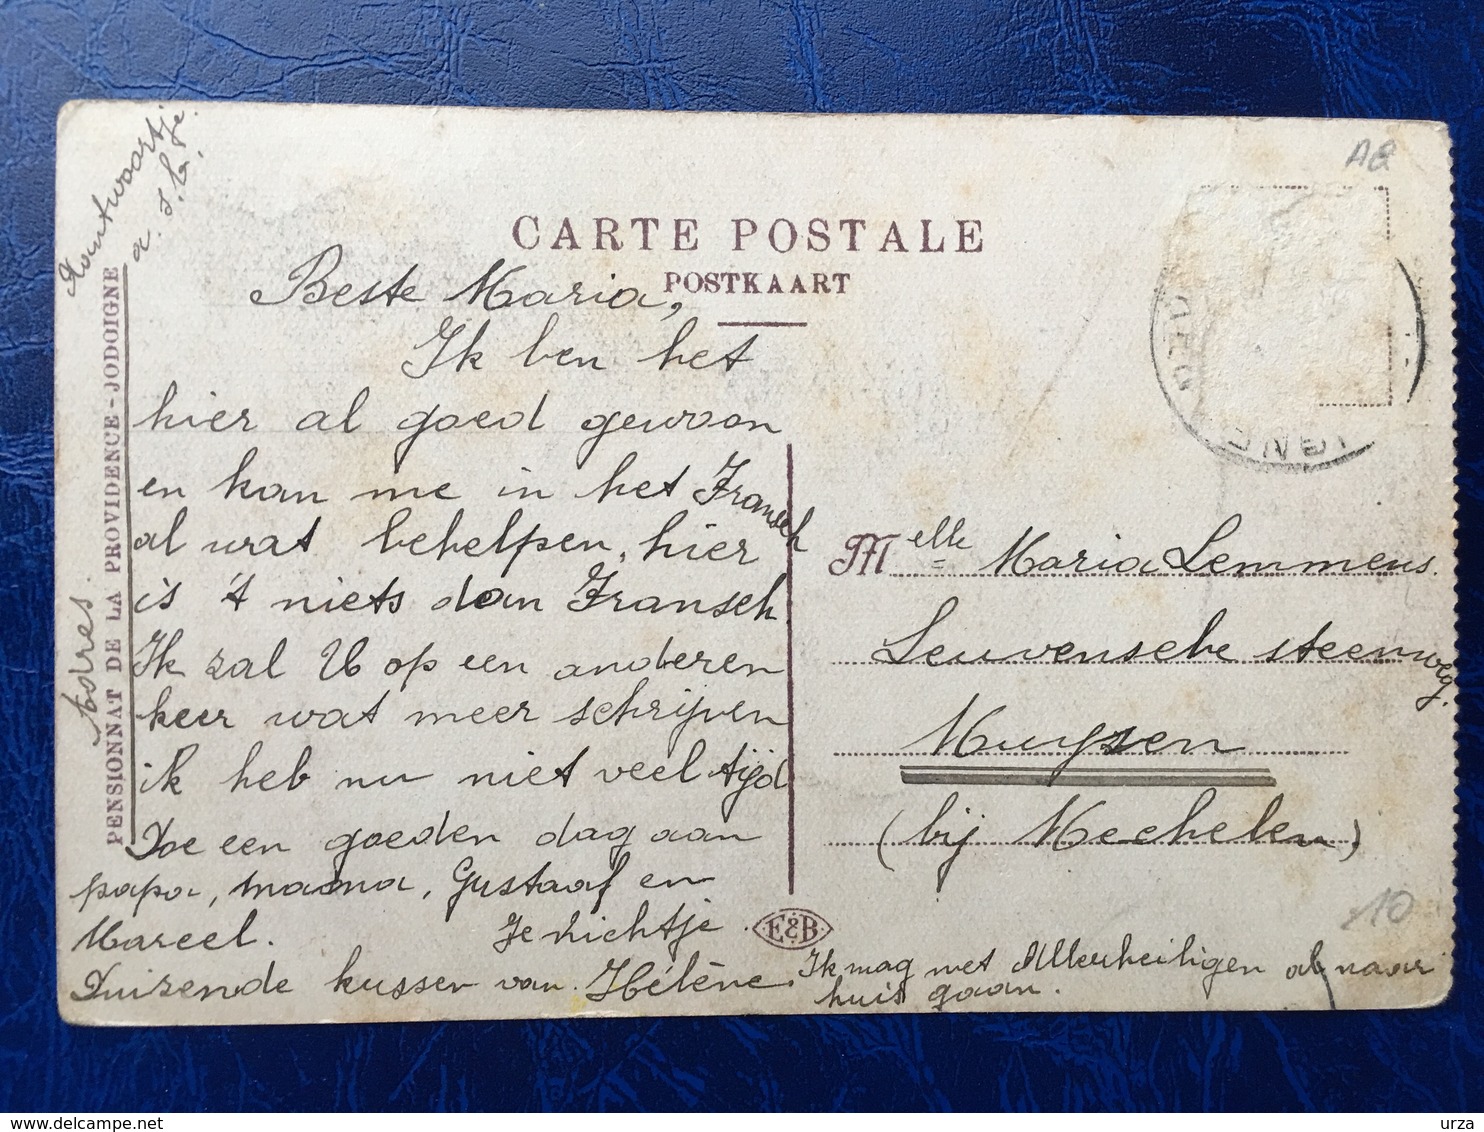 CARTE POSTALE
POSTKAART
PENSIONNAT DE LA PROVIDENCE - JODOIGNE
Adres.
Aountwoortje
a. s. b.
Beste Maria,
Ik ben het
hier al goed gewoon
en kan me in het Fransch
al wat behelpen, hier
is 't niets dan Fransch.
Ik zal U op een anderen
keer wat meer schrijven
ik heb nu niet veel tijd
Doe een goeden dag aan
papa, mama, Gustaaf en
Marcel. Je nichtje
Duizende kussen van Hélène.
Ik mag met Allerheiligen al naar
huis gaan.
E&B
Melle Maria Lemmens.
Leuvensche steenweg.
Muysen
(bij Mechelen)
A2
10
delcampe.net
urza